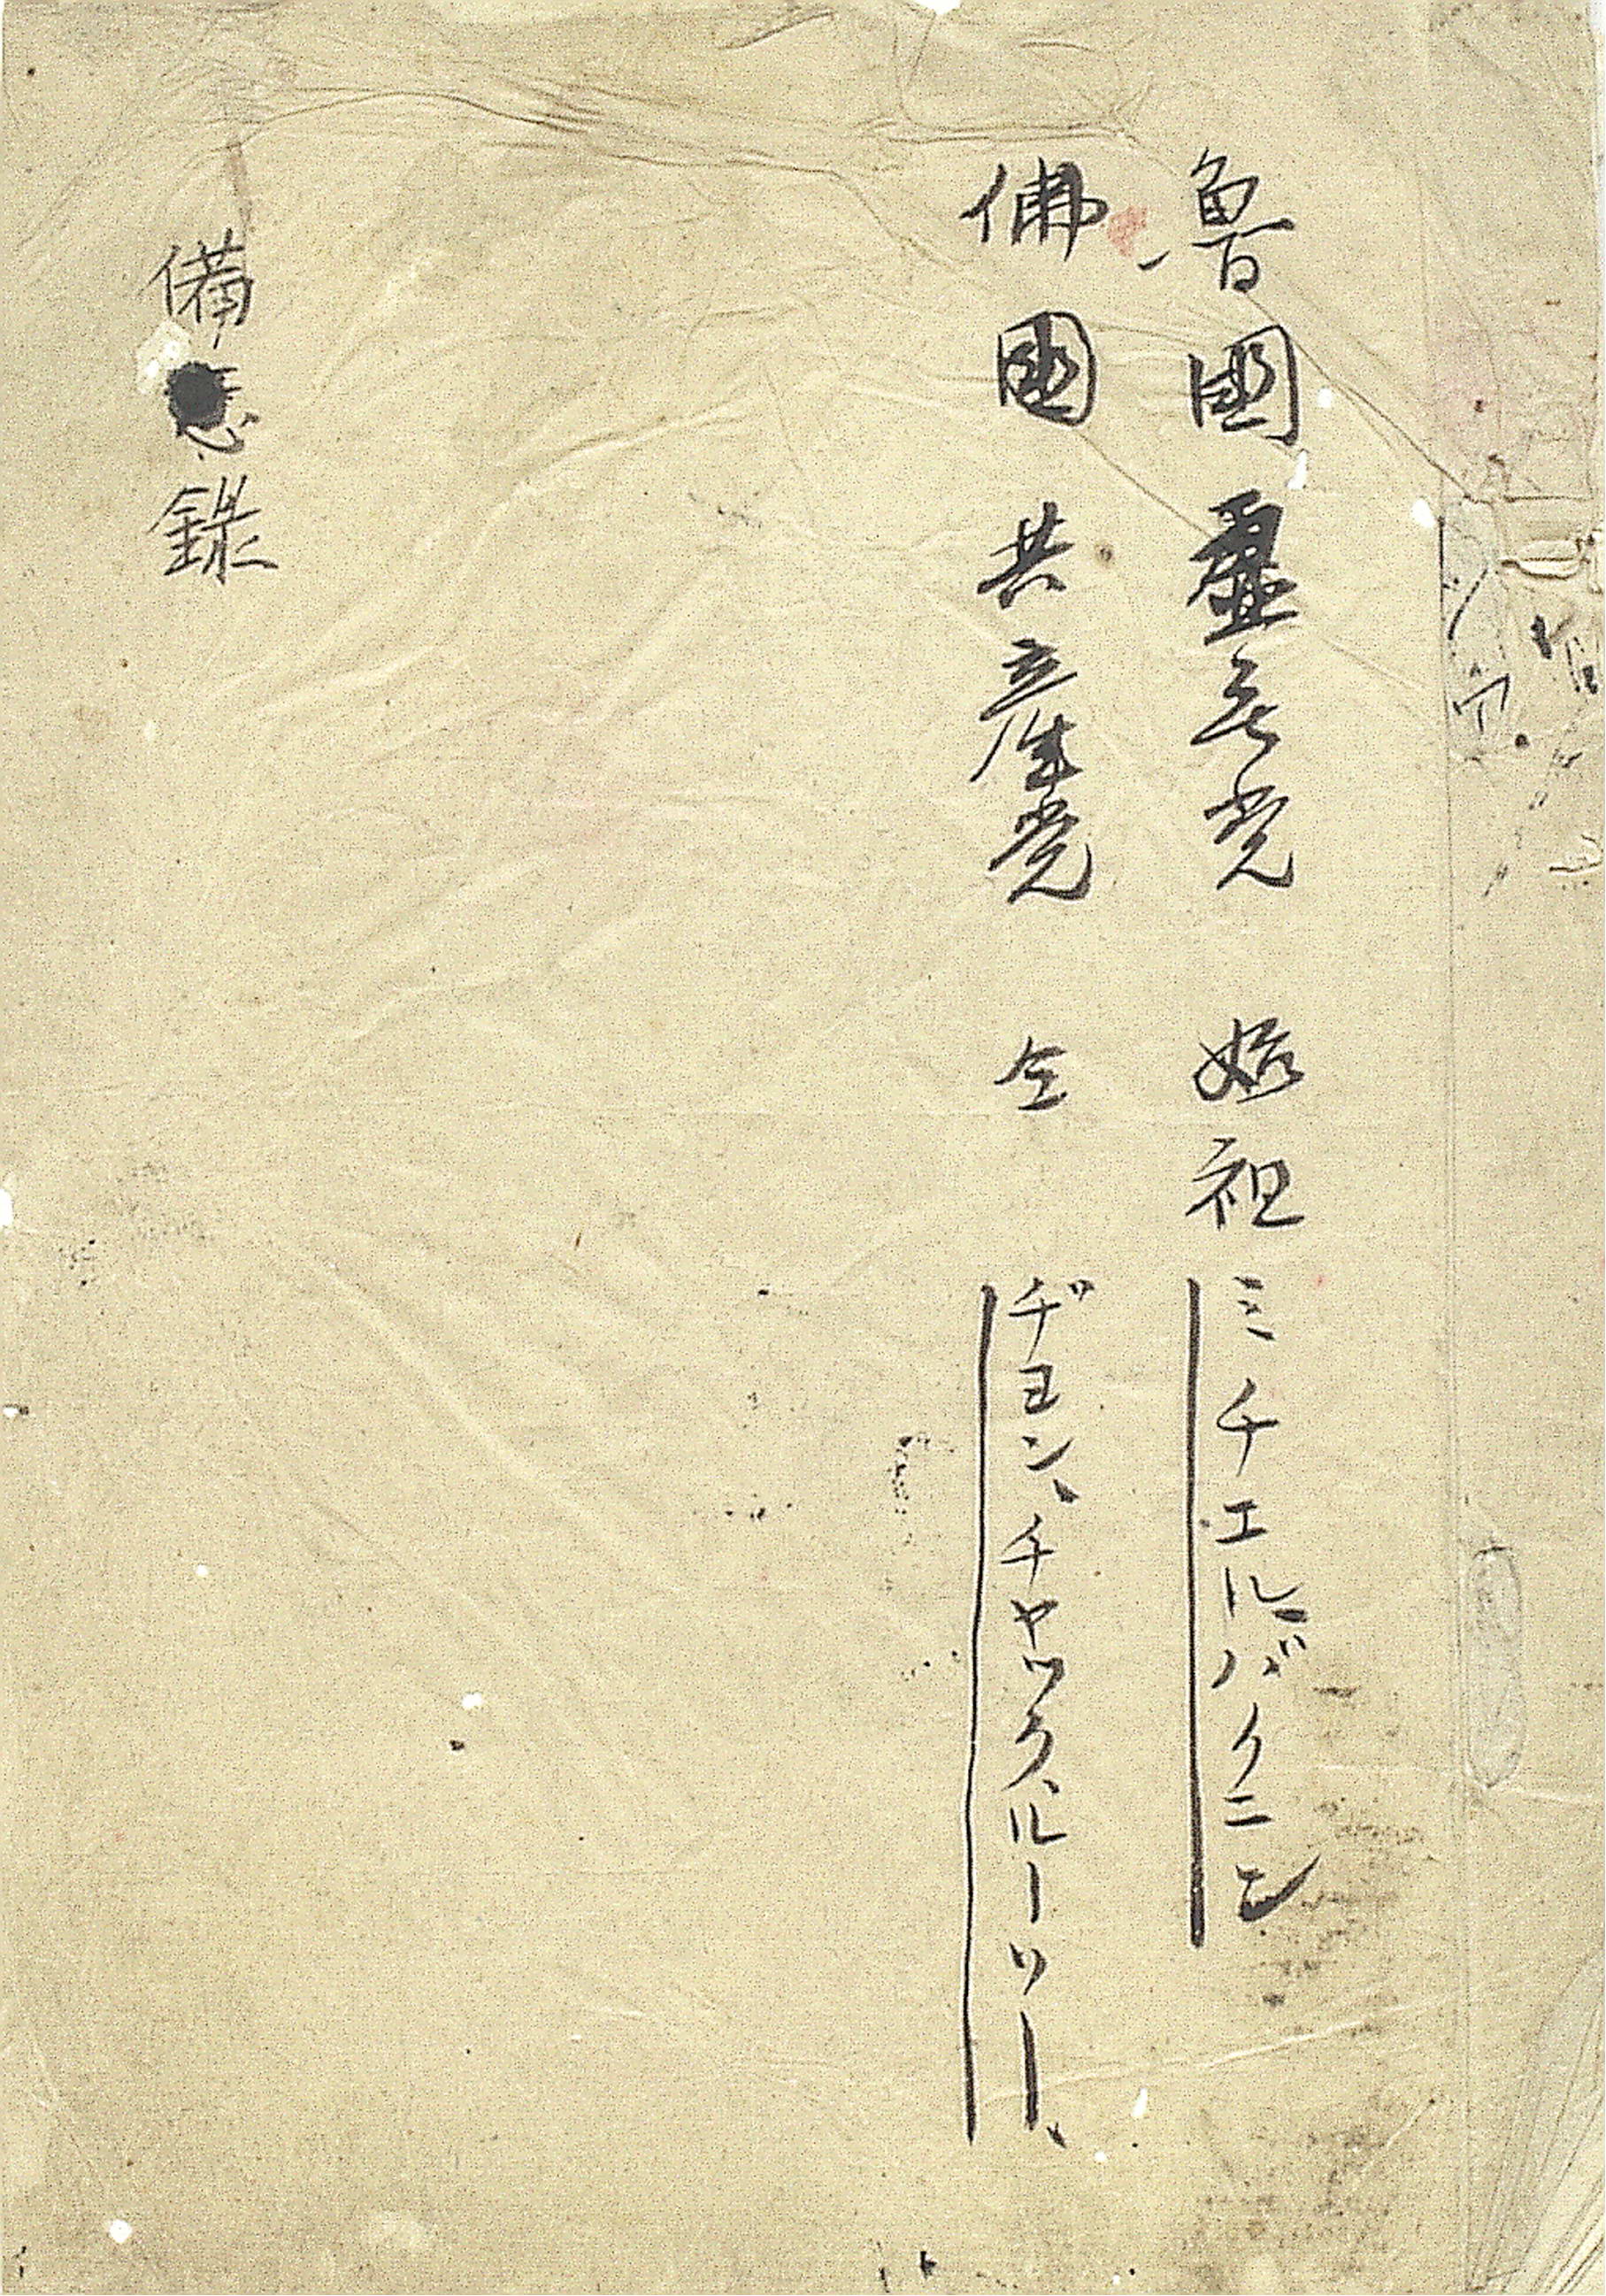 魯國虚無党 始祖 ミチエルバクニン
佛國共産党 仝 ヂヨン、チヤツク、ルーソー、
備忘録